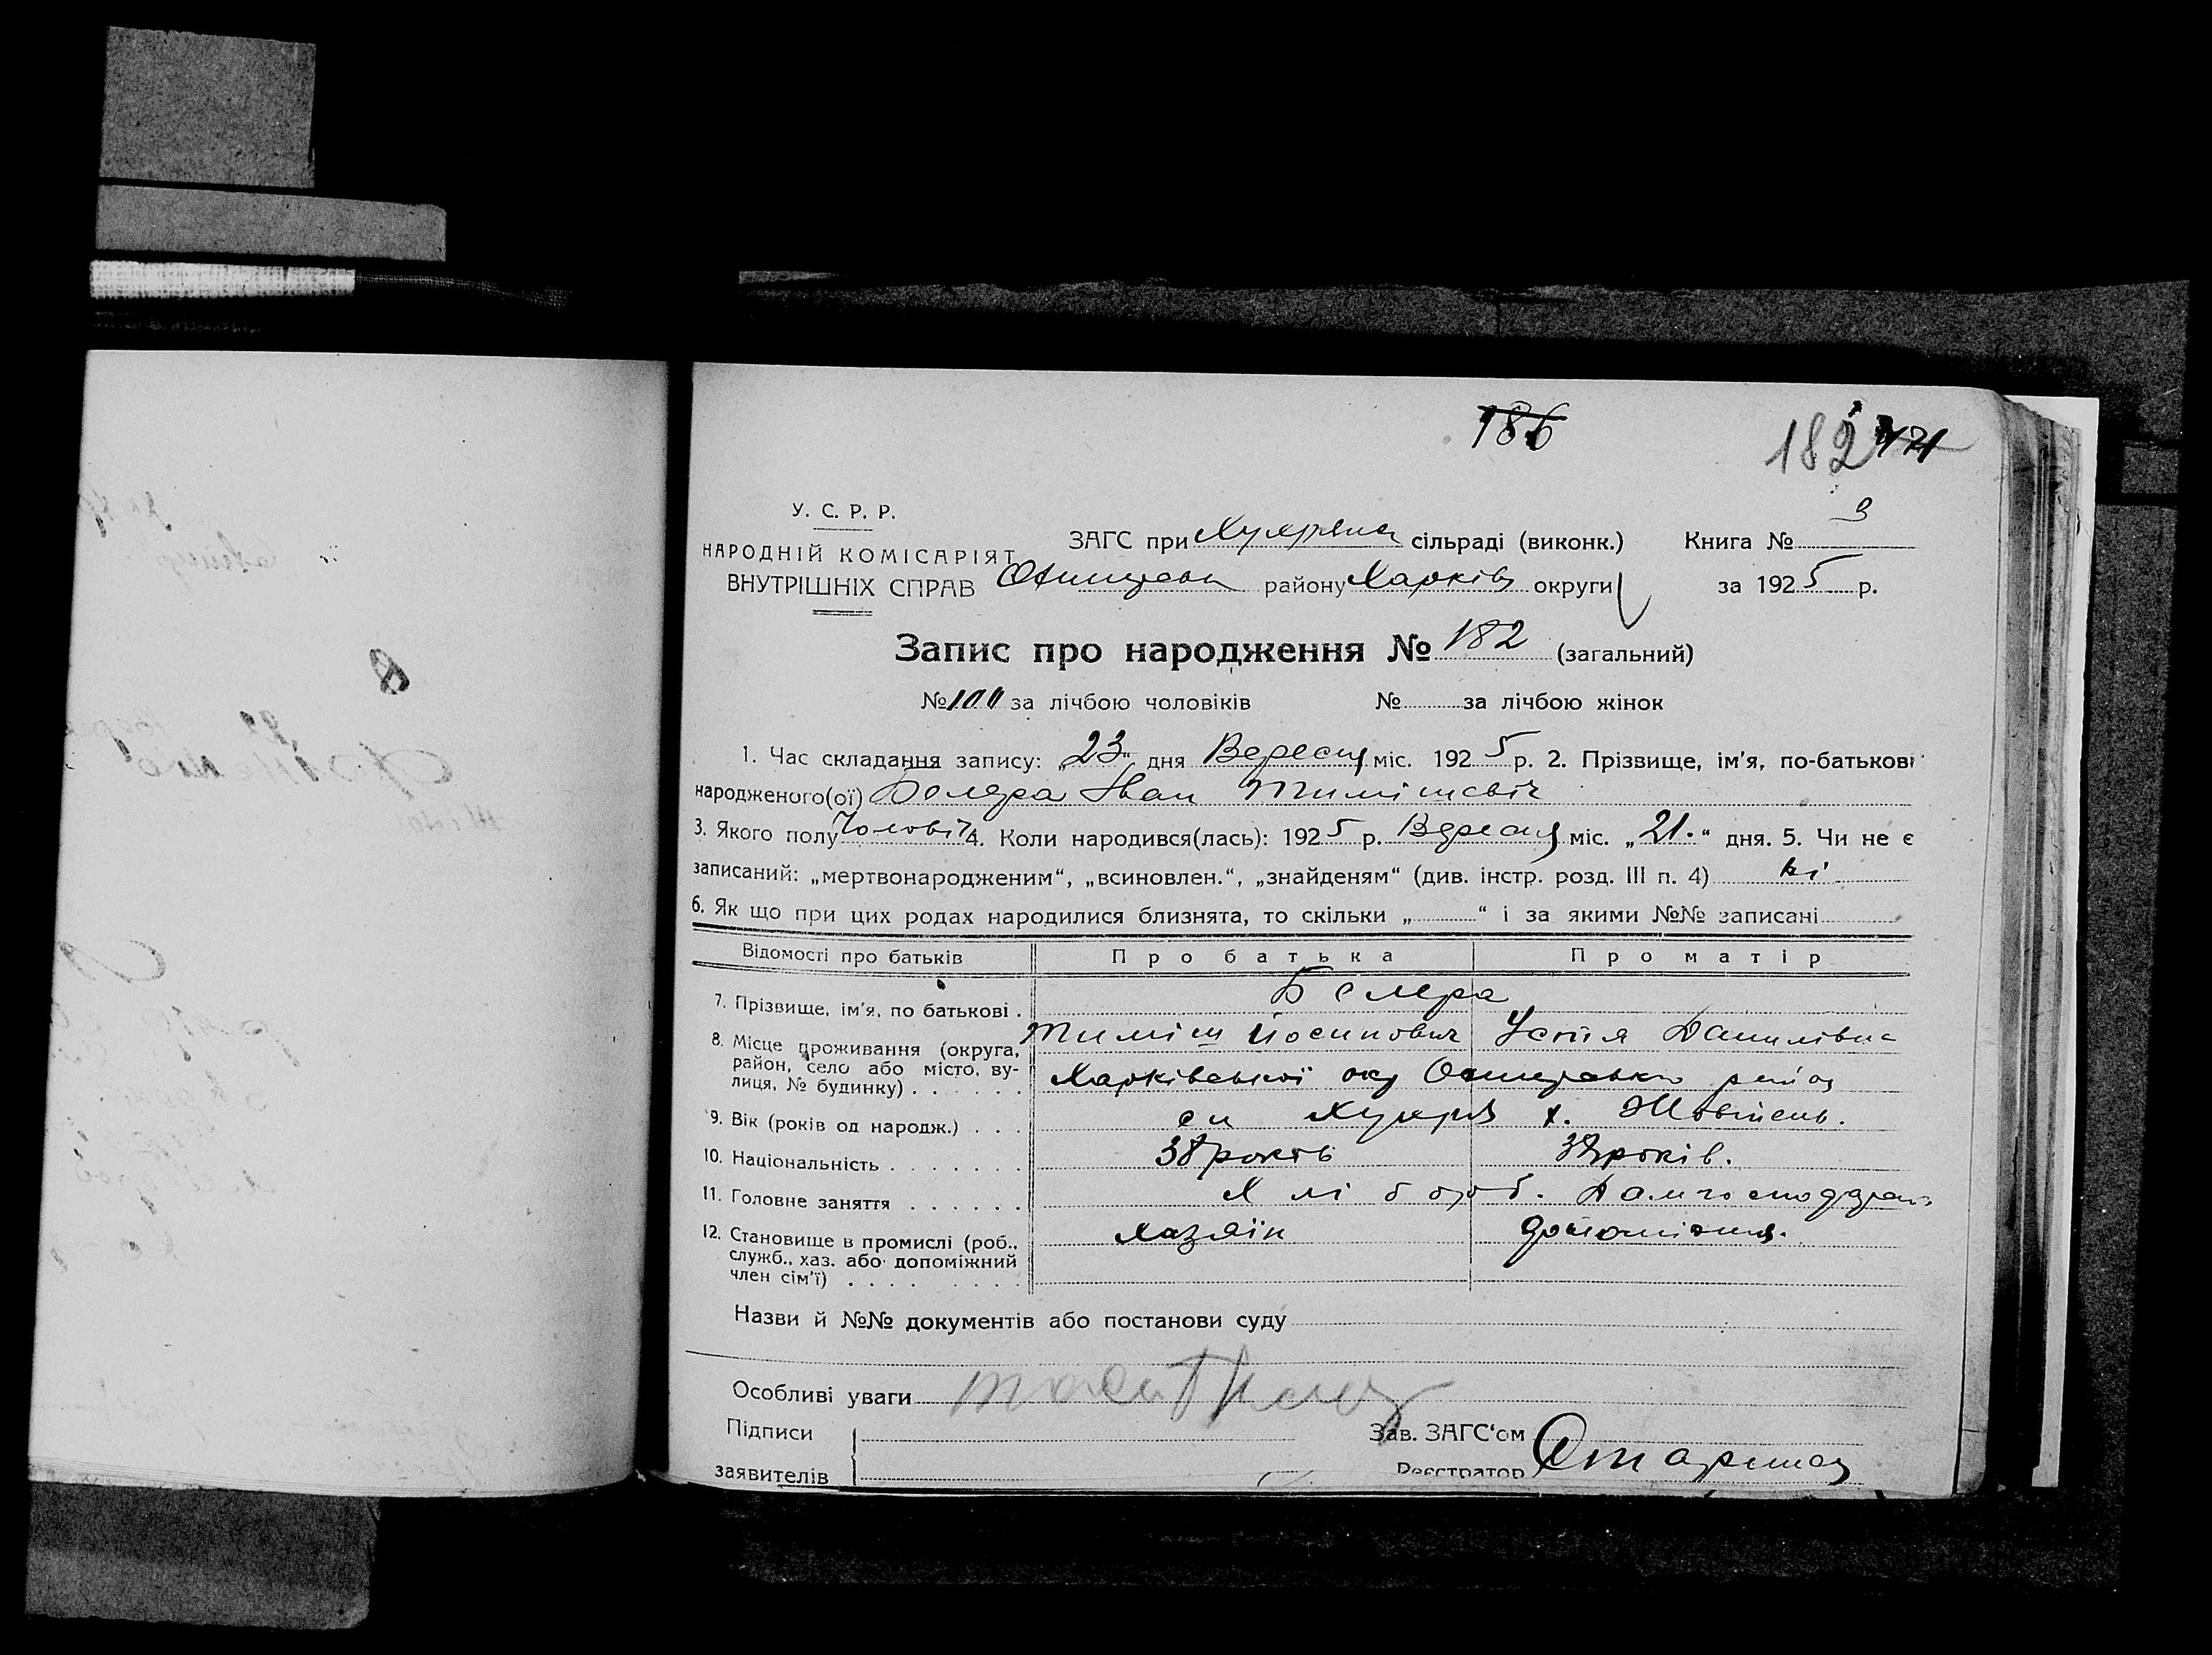 186
182
У. С. Р. Р.
НАРОДНІЙ КОМІСАРІЯТ
ВНУТРІШНІХ СПРАВ
ЗАГС при сільраді (виконк.) Книга № 3
району Харків округи за 1925 р.
Запис про народження № 182 (загальний)
№ 100 за лічбою чоловіків № за лічбою жінок
1. Час складання запису: „23“ дня Вересня міс. 1925 р. 2. Прізвище, ім'я, по-батькові
народженого(ої) Іван
3. Якого полу Чоловіч 4. Коли народився(лась): 1925 р. Вересня міс. „21.“ дня. 5. Чи не є
записаний: „мертвонародженим“, „всиновлен.“, „знайденям“ (див. інстр. розд. III п. 4) ні
6. Як що при цих родах народилися близнята, то скільки „ “ і за якими №№ записані
Відомості про батьків Про батька Про матір
7. Прізвище, ім'я, по батькові .
Тиміш Йосипович Устя Данилівна
8. Місце проживання (округа, район, село або місто, вулиця, № будинку) . . . . . .
Харківської окр район
9. Вік (років од народж.) . . . х.
10. Національність . . . . . . . 38 років років.
11. Головне заняття . . . . . . Хлібороб.
12. Становище в промислі (роб., служб., хаз. або допоміжний член сім'ї) . . . . . . . . .
хазяїн
Назви й №№ документів або постанови суду
Особливі уваги
Підписи
заявителів
Зав. ЗАГС'ом
Реєстратор